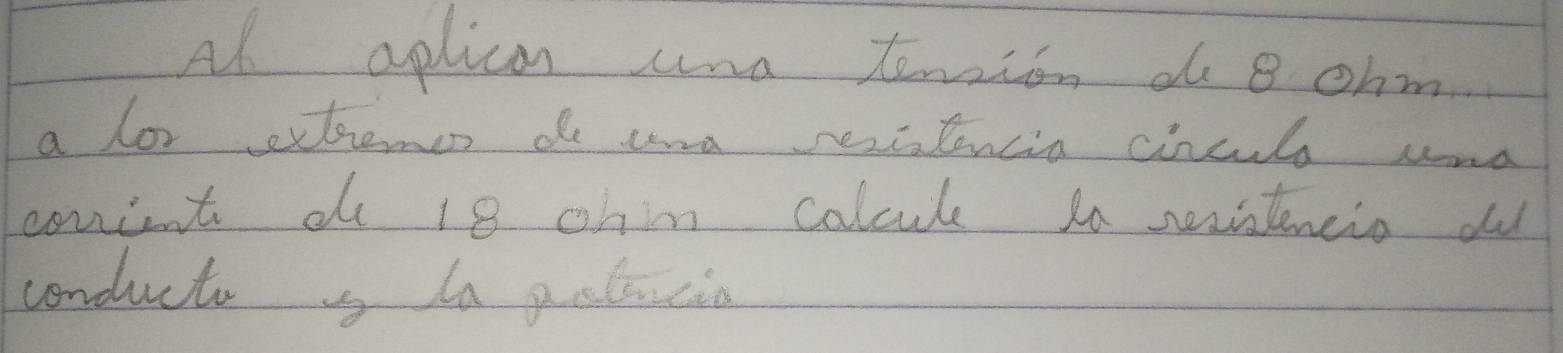 Al aplicar una tensión de 8 ohm
a los extremos de una resistencia circula una
corriente de 18 ohm calcule la resistencia del
conducto y la potencia